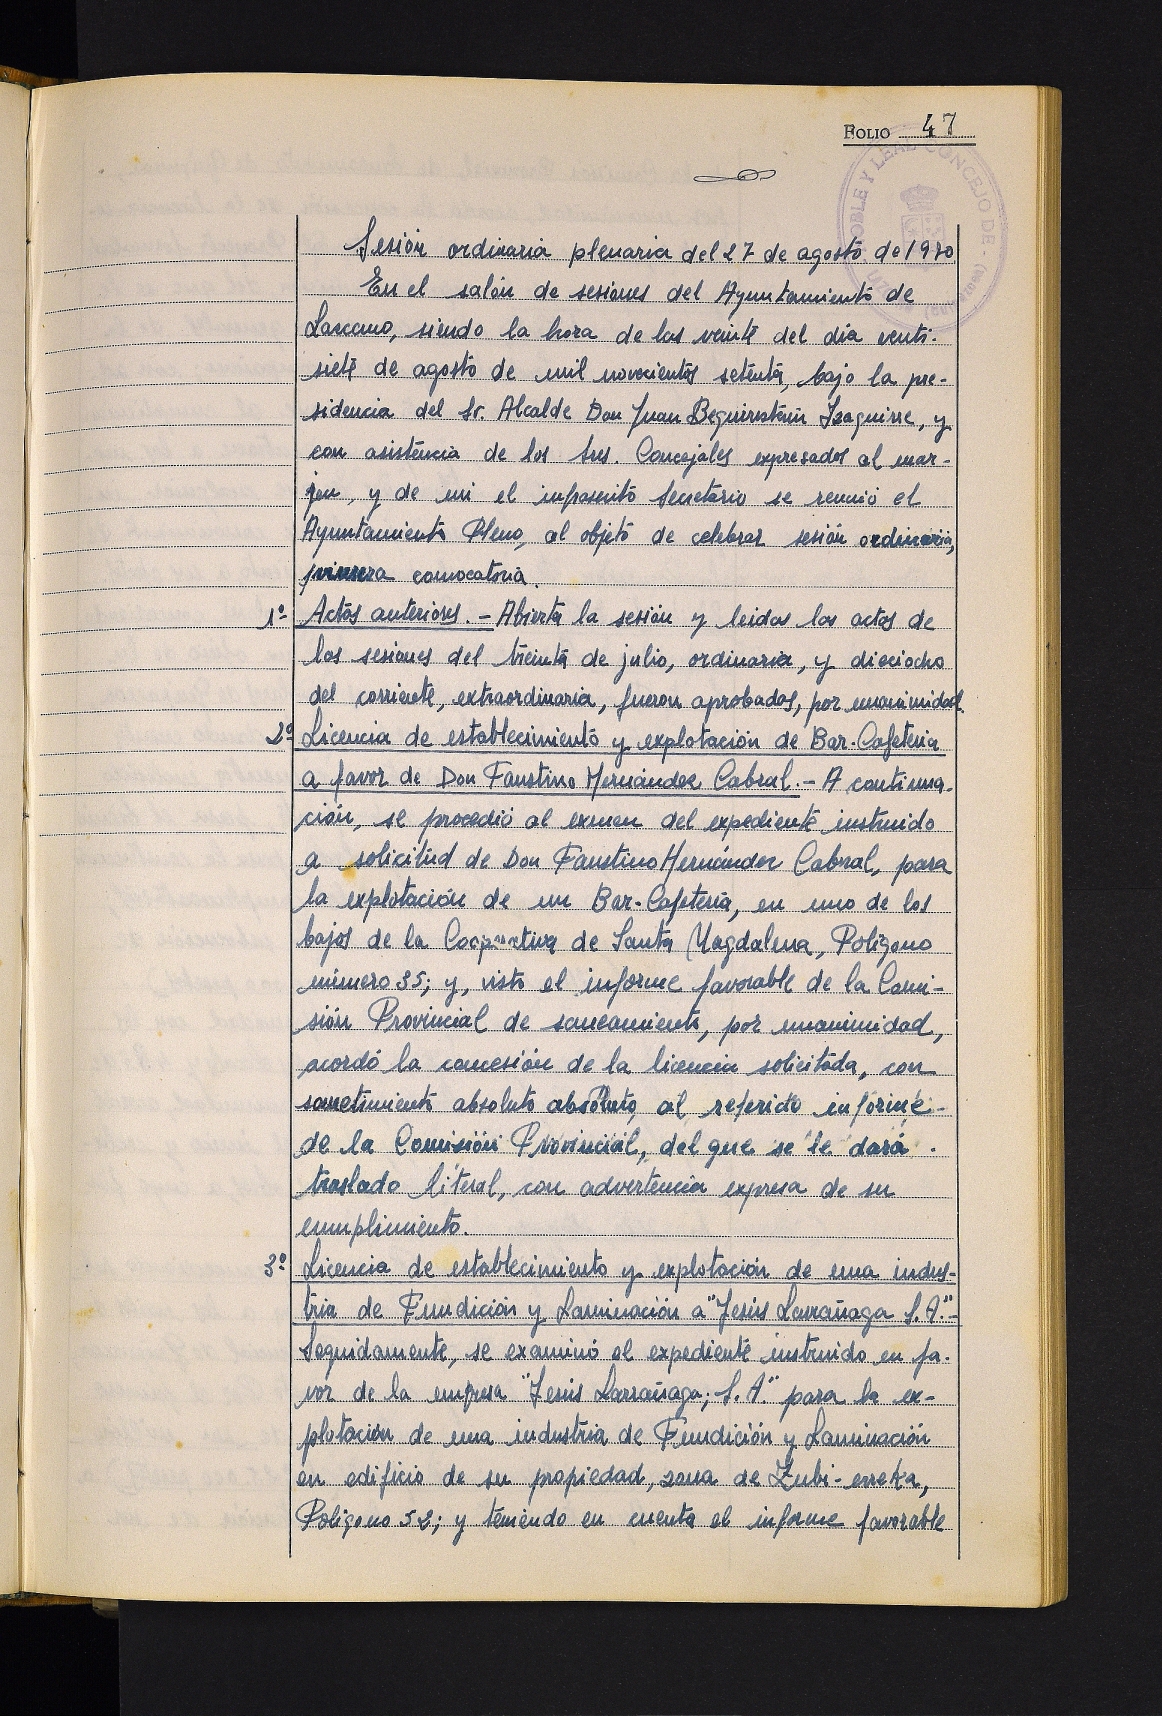 FOLIO 47
NOBLE Y LEAL CONCEJO DE -
Sesión ordinaria plenaria del 27 de agosto de 1970
En el salón de sesiones del Ayuntamiento de
Lazcano, siendo la hora de las veinte del día venti-
siete de agosto de mil novecientos setenta, bajo la pre-
sidencia del Sr. Alcalde Don Juan Beguiristain Izaguirre, y
con asistencia de los Sres. Concejales expresados al mar-
jen, y de mi el infrascrito Secretario se reunió el
Ayuntamiento Pleno, al objeto de celebrar sesión ordinaria,
primera convocatoria.
1º Actas anteriores. - Abierta la sesión y leidas las actas de
las sesiones del treinta de julio, ordinaria, y dieciocho
del corriente, extraordinaria, fueron aprobadas, por unanimidad.
2º Licencia de establecimiento y explotación de Bar-Cafeteria
a favor de Don Faustino Hernández Cabral. - A continua-
ción, se procedió al examen del expediente instruido
a solicitud de Don Faustino Hernández Cabral, para
la explotación de un Bar-Cafeteria, en uno de los
bajos de la Cooperativa de Santa Magdalena, Poligono
número 35; y, visto el informe favorable de la Comi-
sión Provincial de saneamiento, por unanimidad,
acordó la concesión de la licencia solicitada, con
sometimiento absoluto absoluto, al referido informe
de la Comisión Provincial, del que se le dará
traslado literal, con advertencia expresa de su
cumplimiento.
3º Licencia de establecimiento y explotación de una indus-
tria de Fundición y Laminación a "Jesús Larrañaga S.A." -
Seguidamente, se examinó el expediente instruido en fa-
vor de la empresa "Jesús Larrañaga; S.A." para la ex-
plotación de una industria de Fundición y Laminación
en edificio de su propiedad, zona de Zubi-erreka,
Poligono 52; y teniendo en cuenta el informe favorable